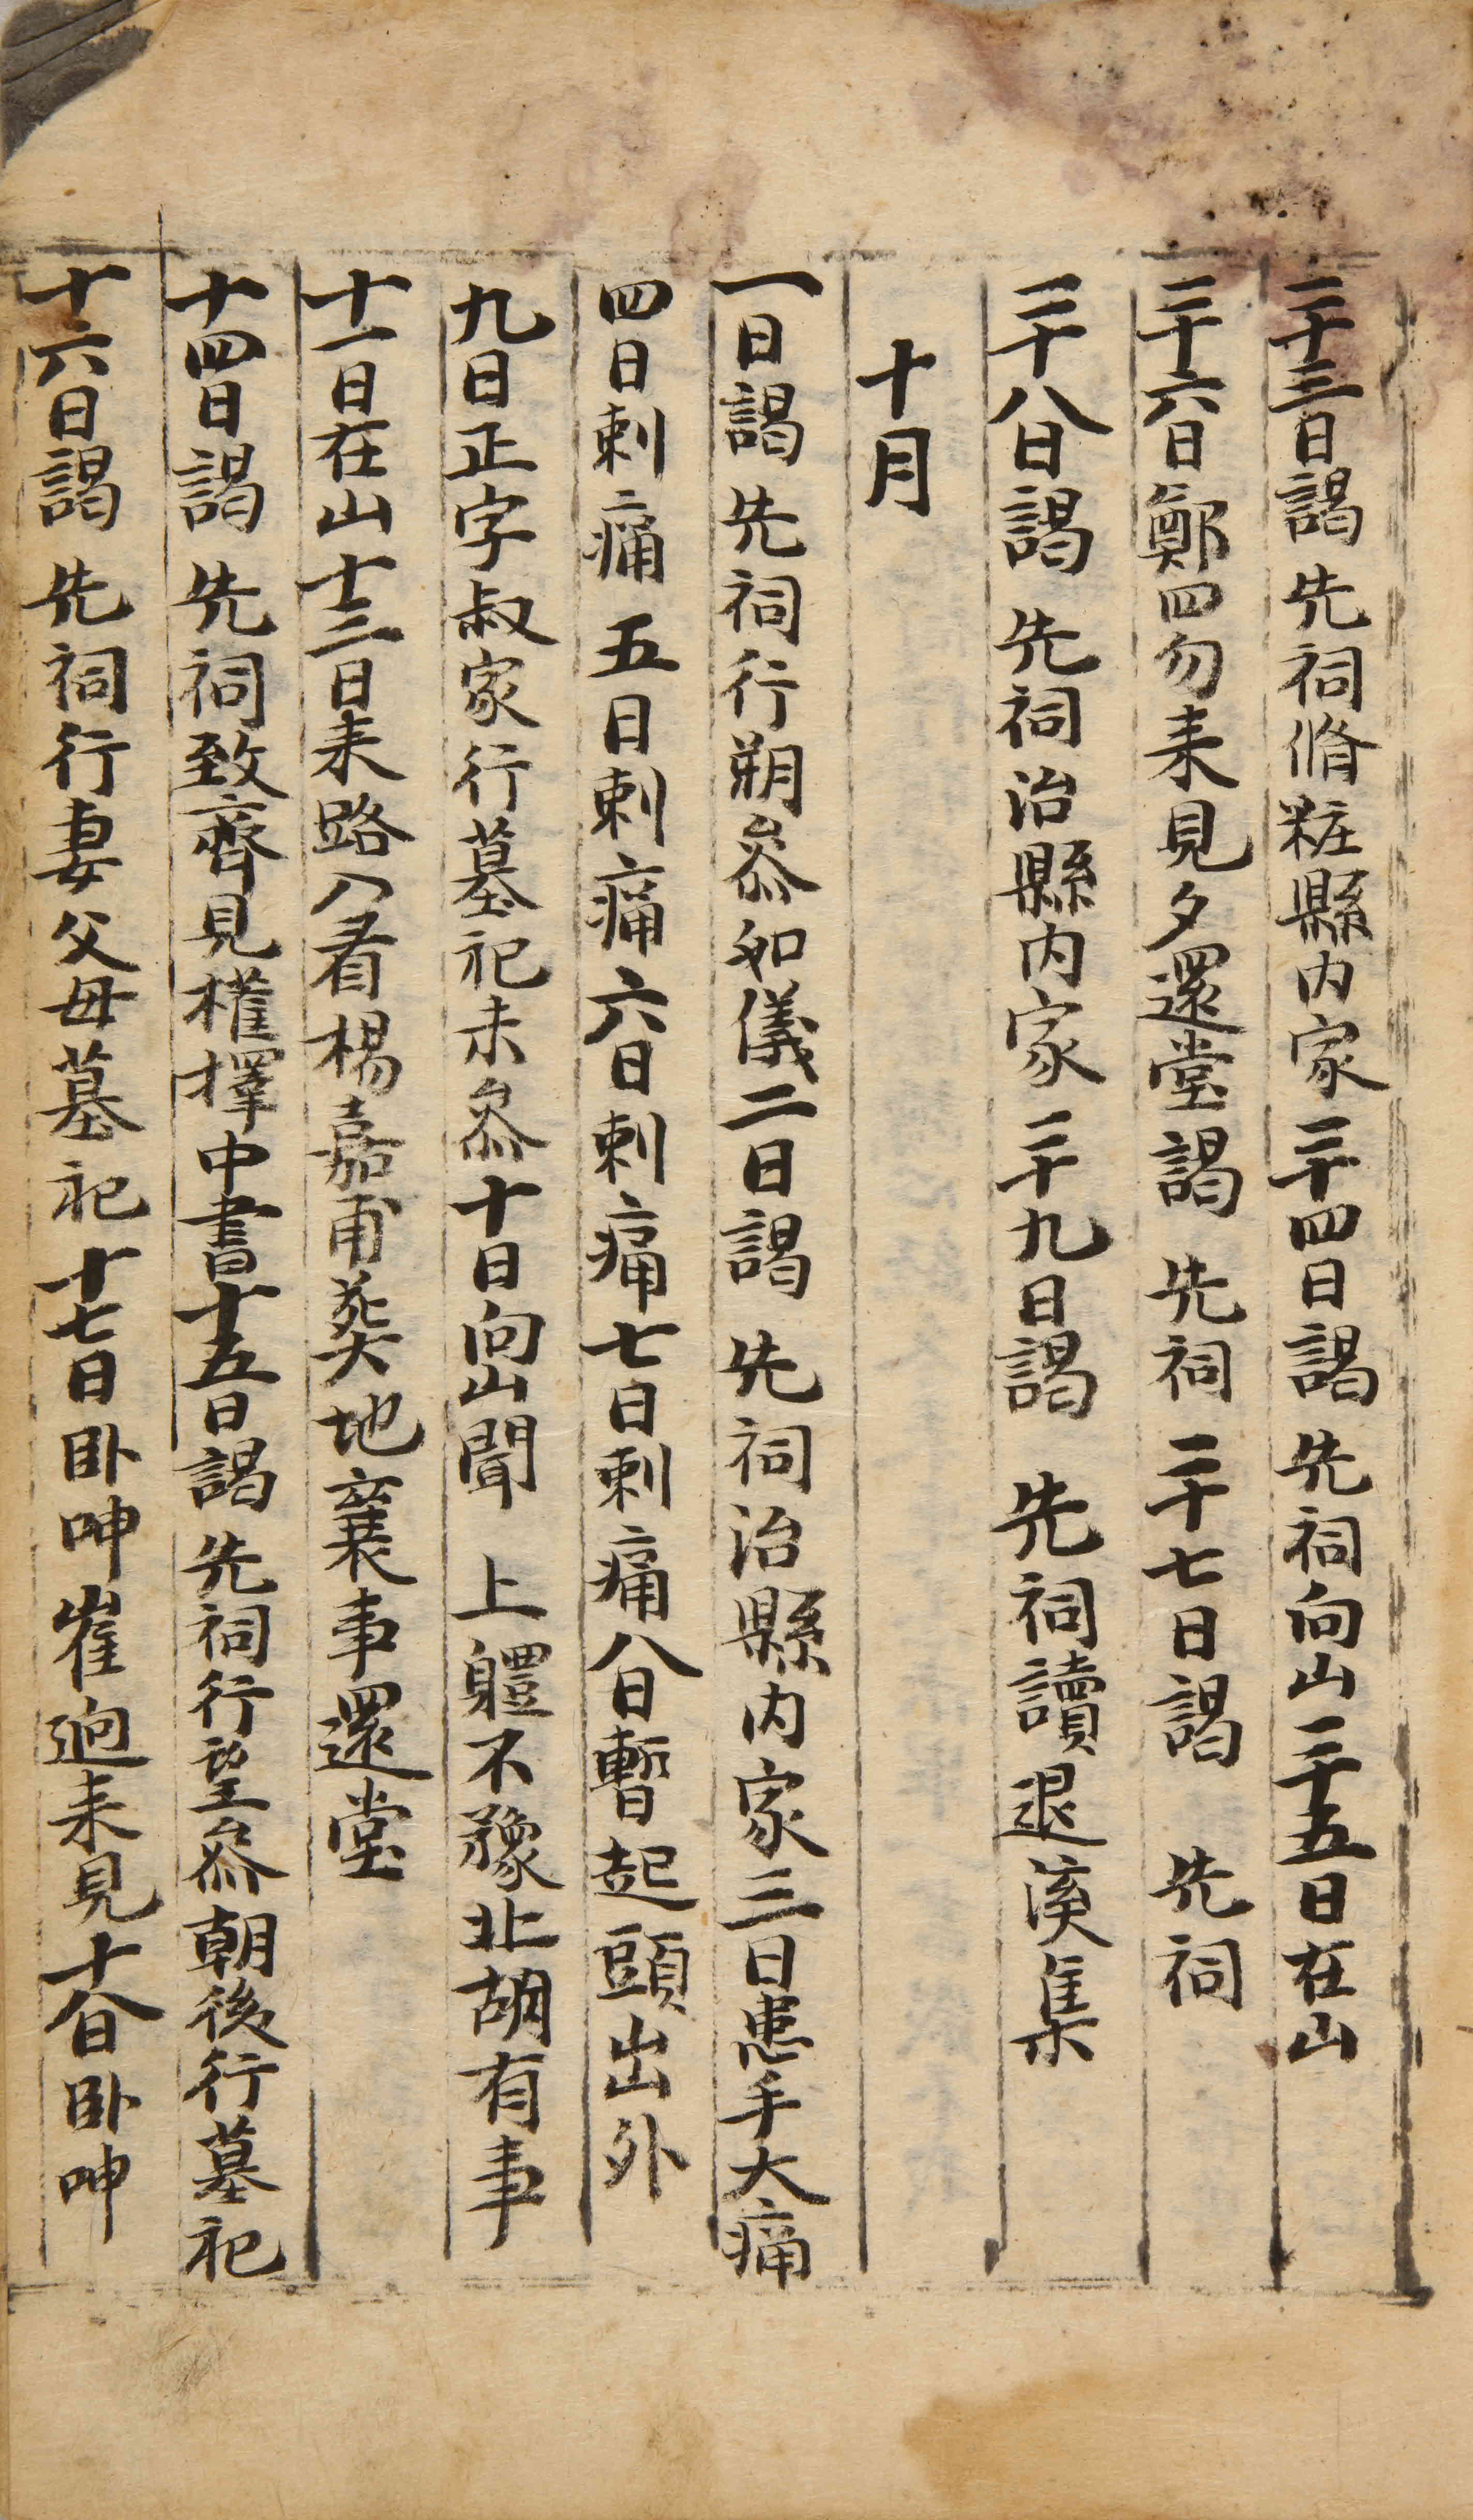 二十三日謁 先祠脩粧縣内家二十四日謁 先祠向山二十五日在山
二十六日鄭四勿来見夕還堂謁 先祠 二十七日謁 先祠
二十八日謁 先祠治縣内家 二十九日謁 先祠讀退溪集
十月
一日謁 先祠行朔叅如儀二日謁 先祠治縣内家三日患手大痛
四日刺痛 五日刺痛六日刺痛七日刺痛八日暫起頭出外
九日正字叔家行墓祀未叅十日向山聞 上軆不豫北胡有事
十一日在山十三日来路入看楊嘉甫葬地襄事還堂
十四日謁 先祠致齊見權擇中書十五日謁 先祠行望叅朝後行墓祀
十六日謁 先祠行妻父母墓祀十七日卧呻崔逈来見十八日卧呻